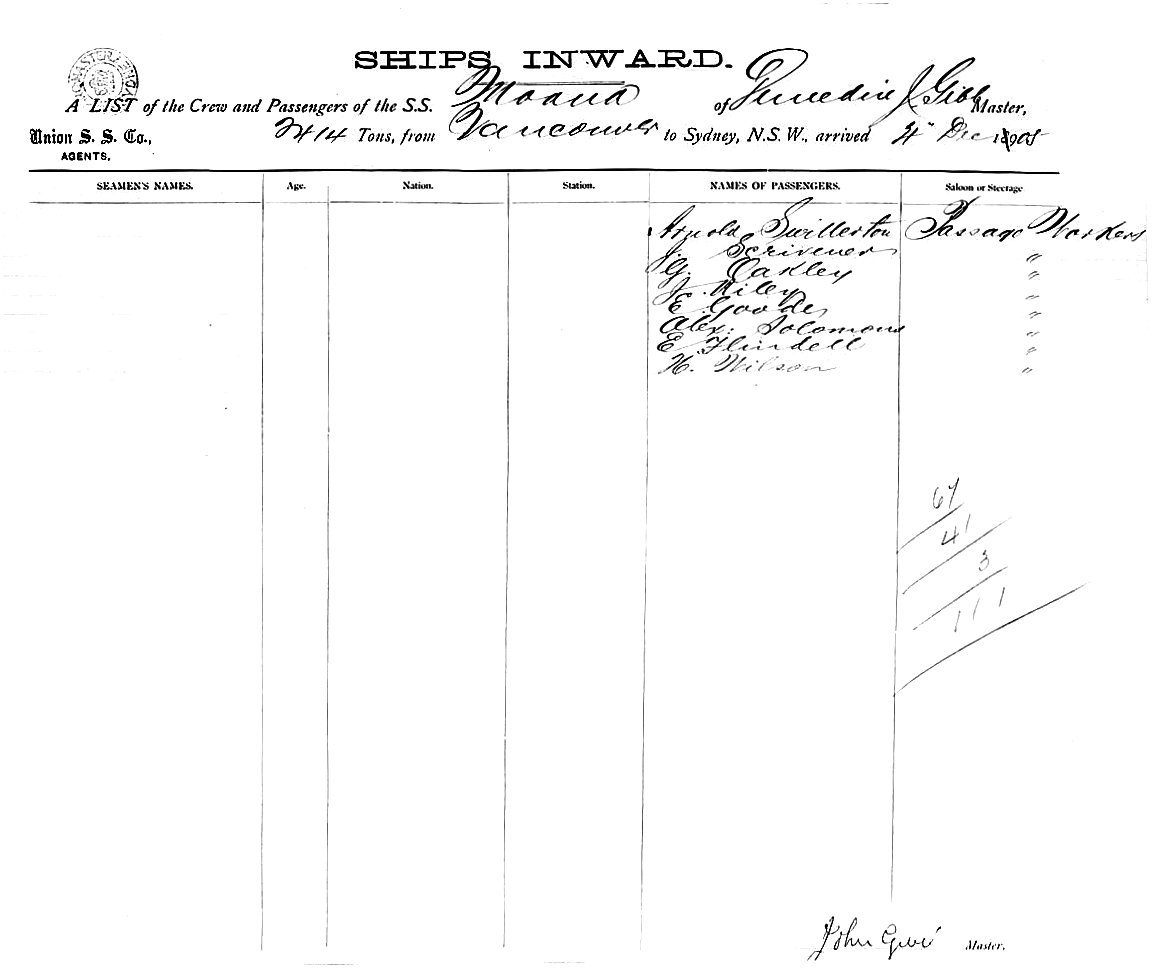 SHIPS INWARD.
A LIST of the Crew and Passengers of the S.S. Moana of Dunedin J Gibb Master,
Union S. S. Co., AGENTS, 2414 Tons, from Vancouver to Sydney, N.S.W., arrived 4th Dec 1905
SEAMEN'S NAMES. Age. Nation. Station. NAMES OF PASSENGERS. Saloon or Steerage
Arnold Swillerton Passage Workers
J. Scrivener "
G. Oakley "
J. Riley "
E Goodes "
Alex: Solomons "
E Flindell "
H. Wilson "
67
41
3
111
John Gibb Master.